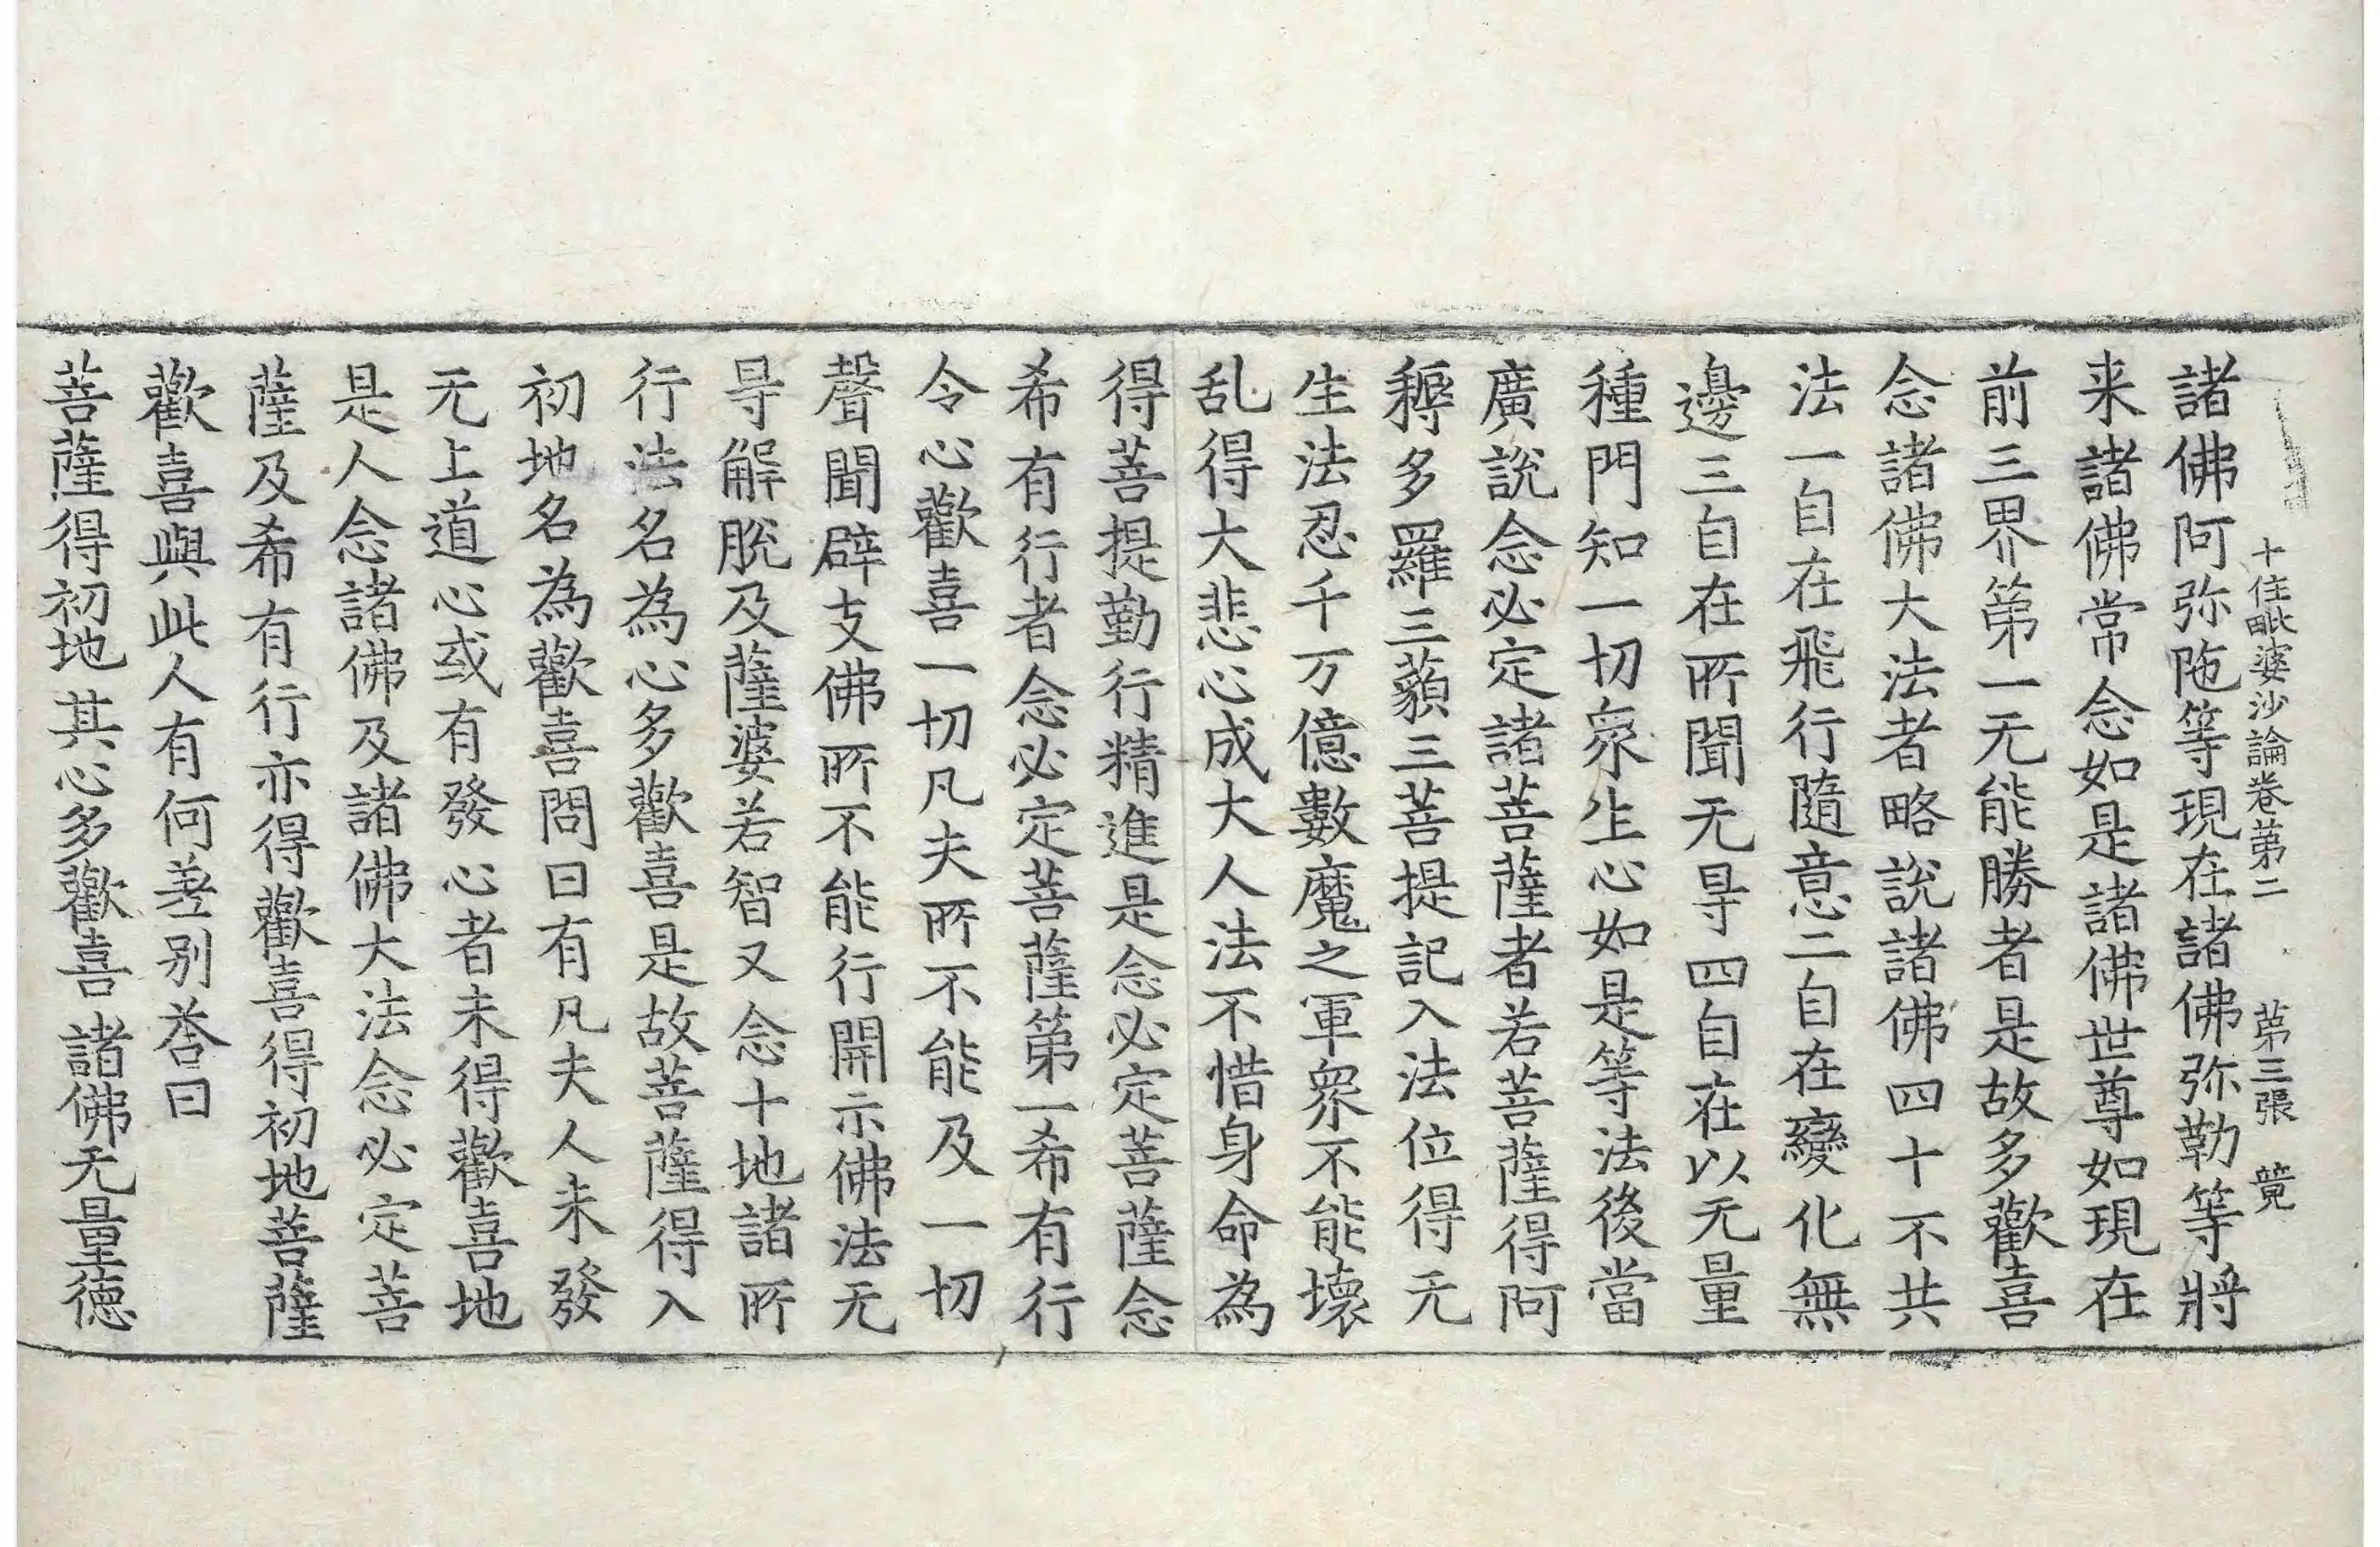 十住毗婆沙論卷第二　第三張　竟
諸佛阿弥陁等現在諸佛弥勒等將
来諸佛常念如是諸佛世尊如現在
前三界第一无能勝者是故多歡喜
念諸佛大法者略說諸佛四十不共
法一自在飛行隨意二自在變化無
邊三自在所聞无㝵四自在以无量
種門知一切衆生心如是等法後當
廣說念必定諸菩薩者若菩薩得阿
耨多羅三藐三菩提記入法位得无
生法忍千万億數魔之軍衆不能壞
乱得大悲心成大人法不惜身命為
得菩提勤行精進是念必定菩薩念
希有行者念必定菩薩第一希有行
令心歡喜一切凡夫所不能及一切
聲聞辟支佛所不能行開示佛法无
㝵解脫及薩婆若智又念十地諸所
行法名為心多歡喜是故菩薩得入
初地名為歡喜問曰有凡夫人未發
无上道心或有發心者未得歡喜地
是人念諸佛及諸佛大法念必定菩
薩及希有行亦得歡喜得初地菩薩
歡喜與此人有何差别荅曰
菩薩得初地其心多歡喜諸佛无量德